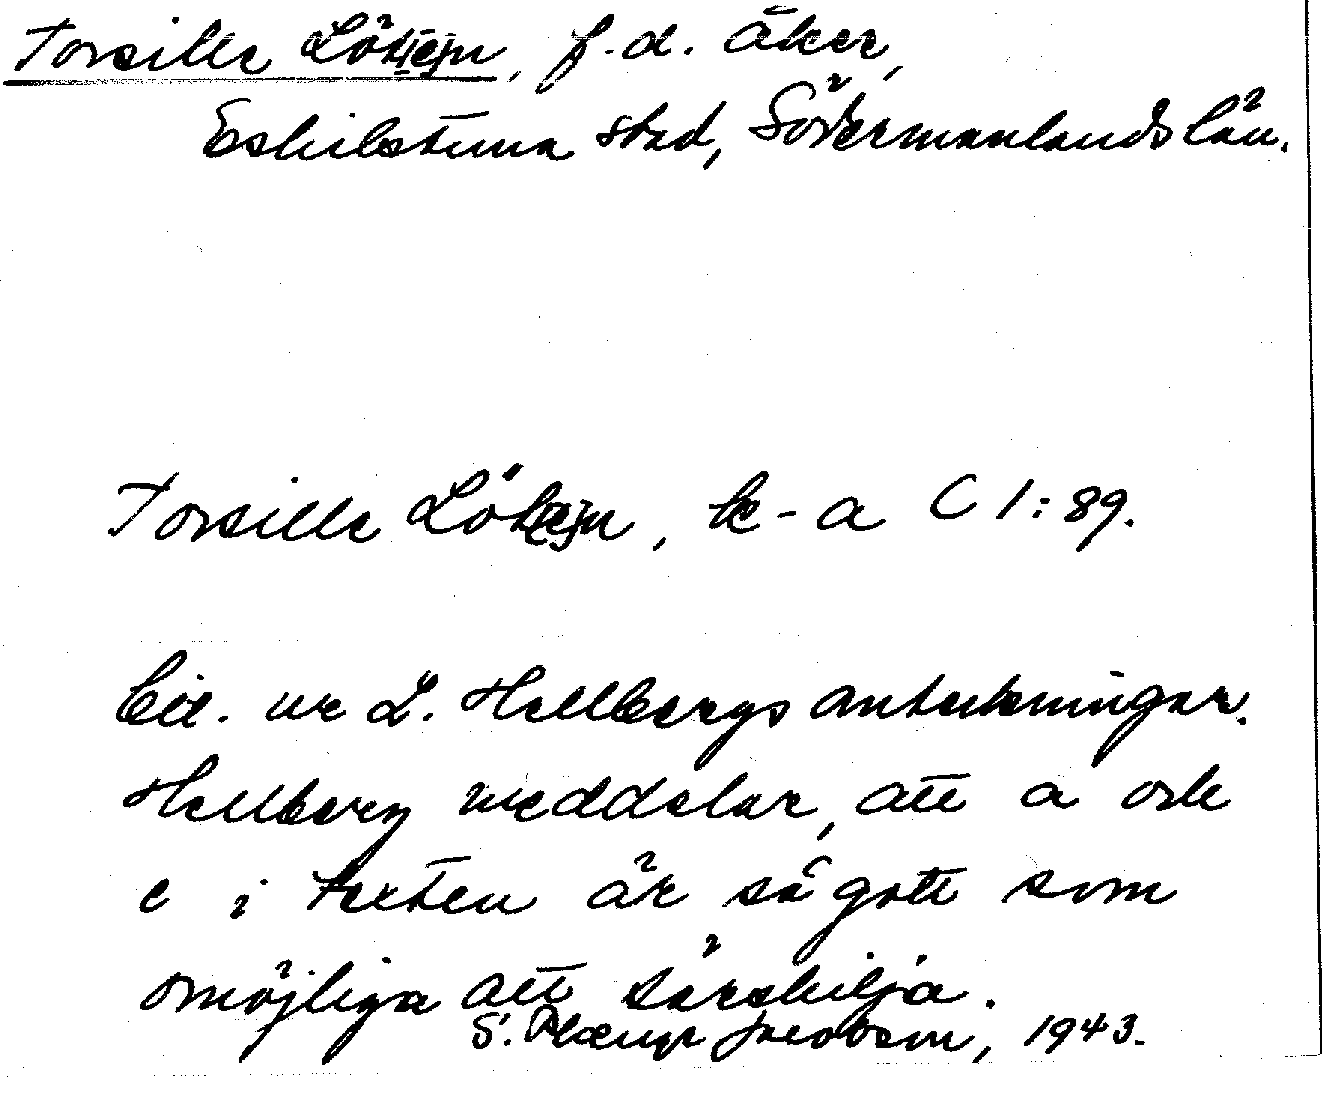 Torsilla Lök[e]n, f.d. åker,
Eskilstuna stad, Södermanlands län.
Torsilla Lök[e]n, k-a C 1:89.
Cit. ur L. Hellbergs anteckningar.
Hellberg meddelar, att a och
e i texten är så gott som
omöjliga att särskilja.
S. Jacobson, 1943.